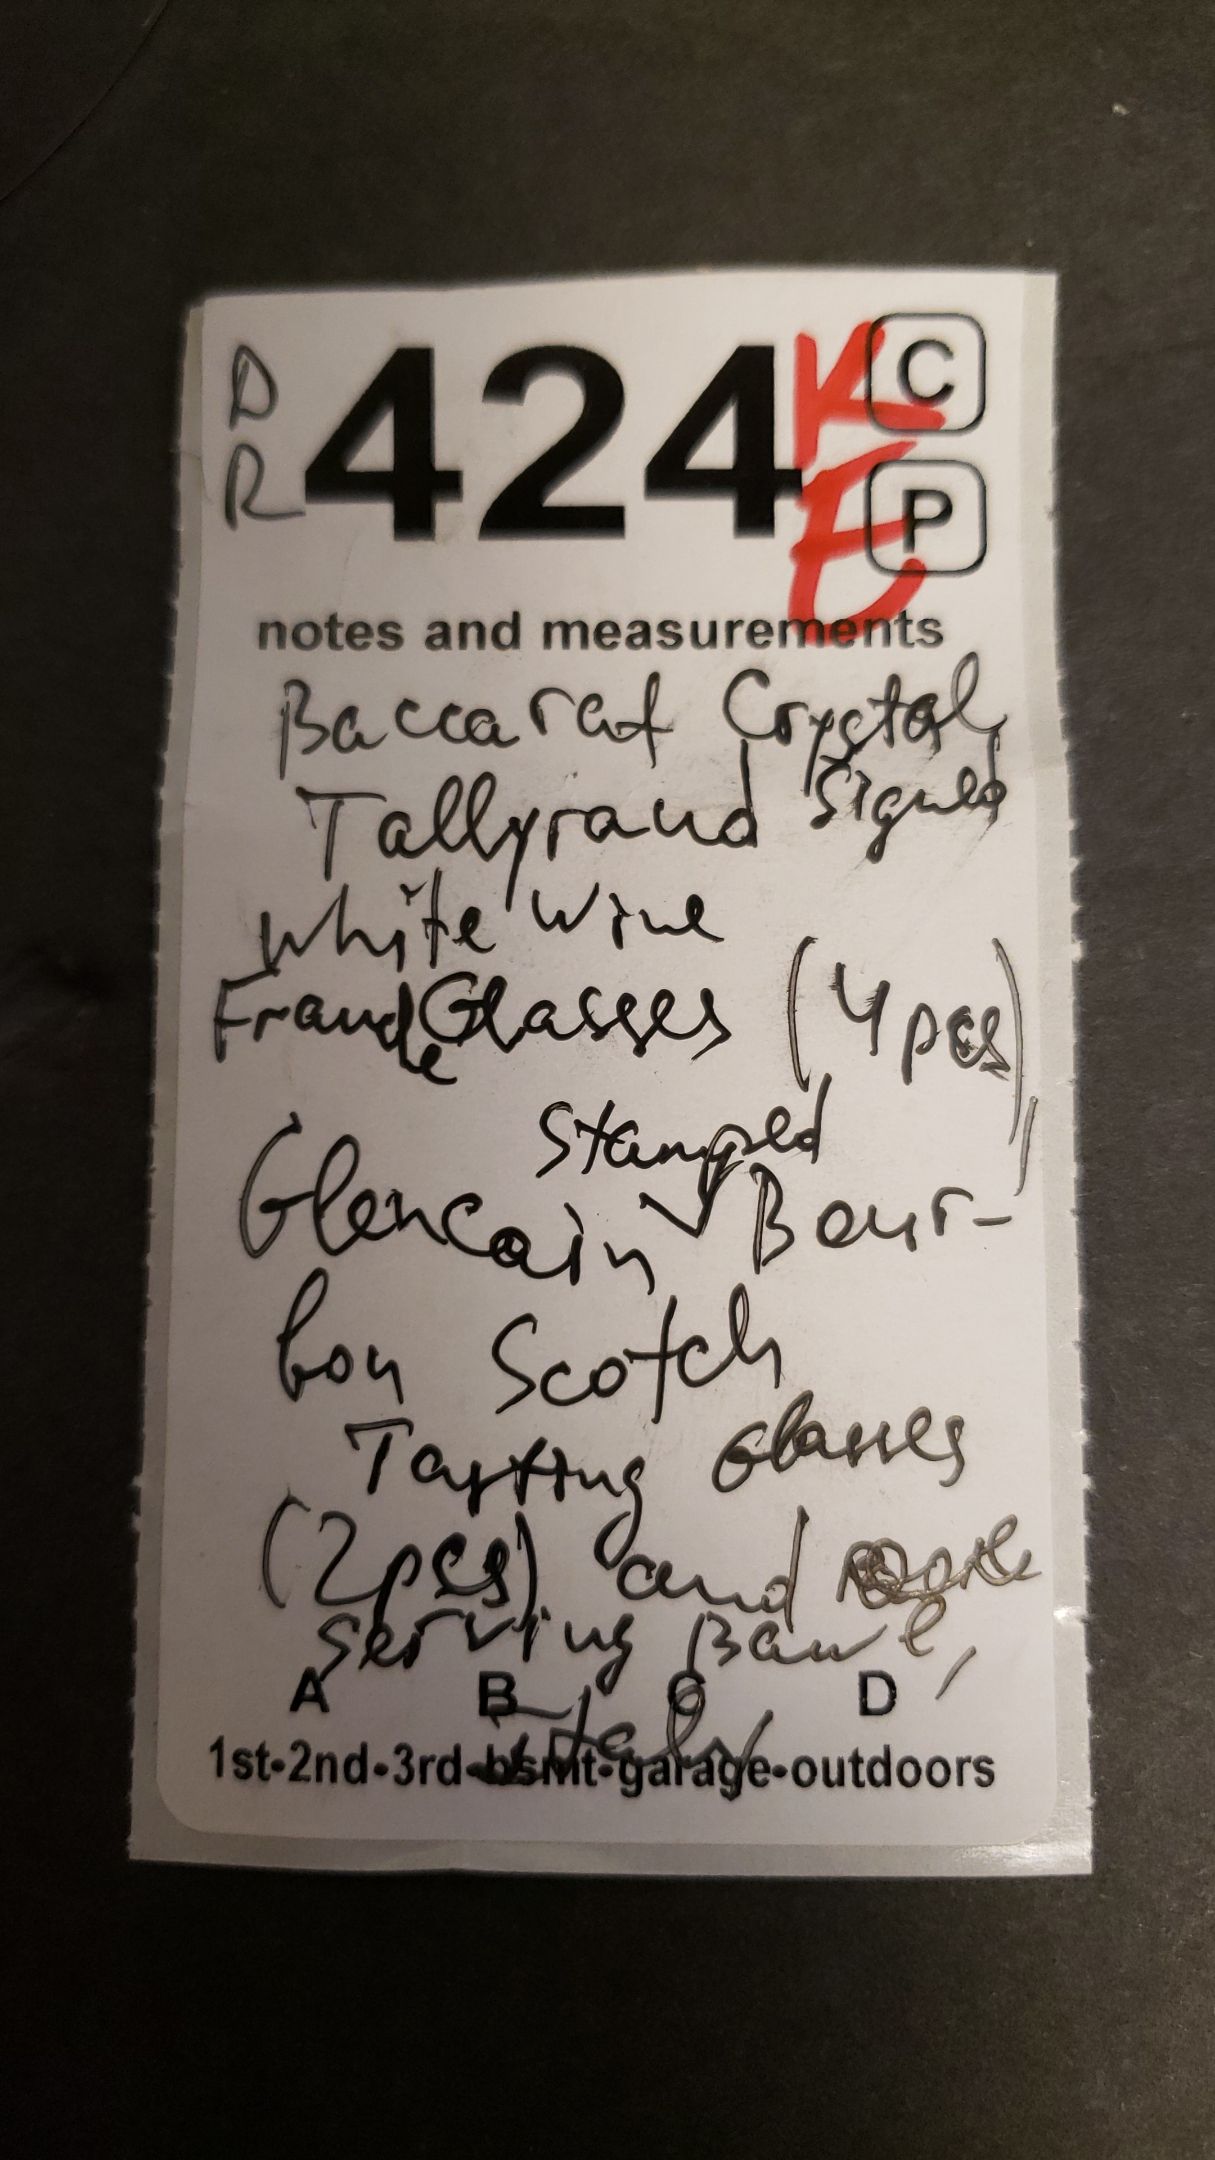 D
R
424
KE
C
P
notes and measurements
Baccarat Crystal,
Tallyrand Signed
White Wine
France Glasses (4pcs),
Stamped
Glencain Bour-
bon Scotch
Tasting Glasses
(2pcs) and
Serving Bawl,
Italy
A B C D
1st•2nd•3rd•bsmt•garage•outdoors